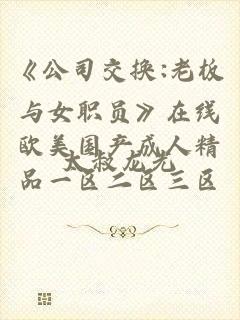 《公司交换:老板
与女职员》在线
欧美国产成人精
太叔龙光
品一区二区三区